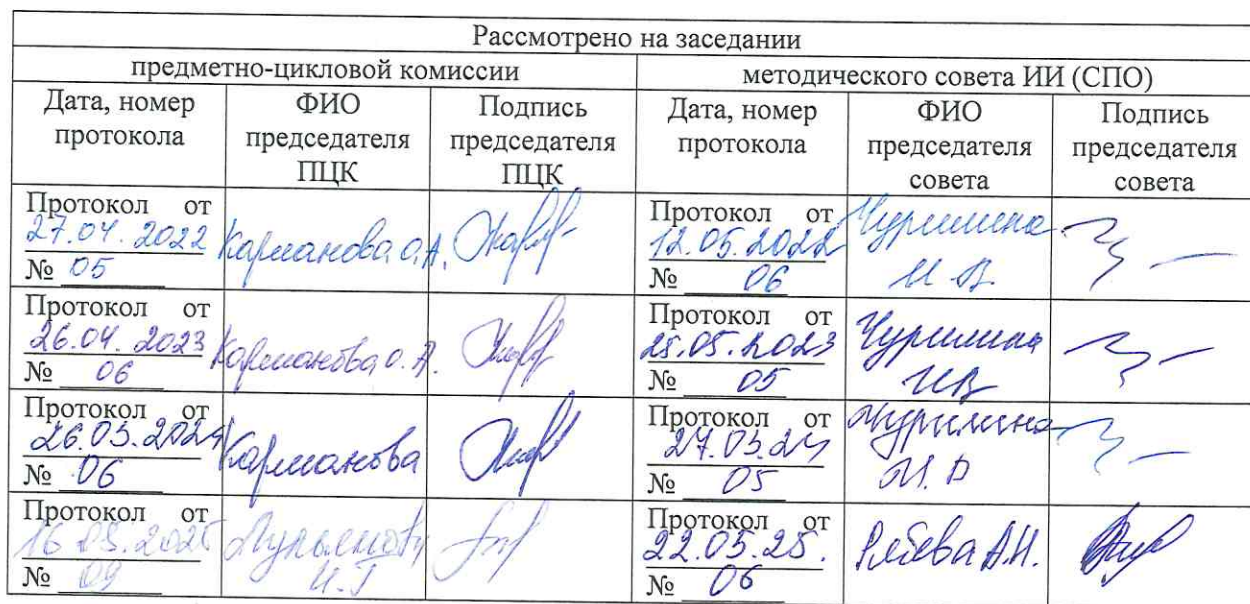 Рассмотрено на заседании
предметно-цикловой комиссии
методического совета ИИ (СПО)
Дата, номер
протокола
ФИО
председателя
ПЦК
Подпись
председателя
ПЦК
Дата, номер
протокола
ФИО
председателя
совета
Подпись
председателя
совета
Протокол от
27.04.2022
№ 05
Карманова О.А.
Протокол от
12.05.2022
№ 06
Чурилина
И.В.
Протокол от
26.04.2023
№ 06
Карманова О.А.
Протокол от
25.05.2023
№ 05
Чурилина
И.В.
Протокол от
26.03.2024
№ 06
Карманова
Протокол от
27.03.24
№ 05
Чурилина
И.В.
Протокол от
16.05.2025
№ 09
И.Г
Протокол от
22.05.25.
№ 06
А.Н.